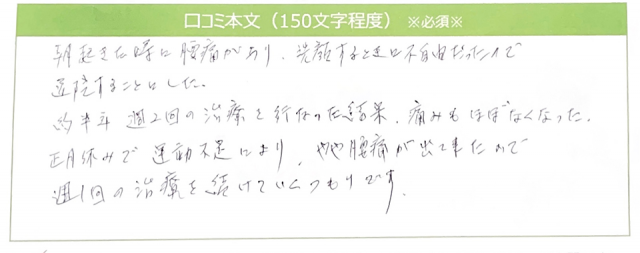 口コミ本文（150文字程度）※必須※
朝起きた時に腰痛があり、洗顔するときに不自由だったので
通院することにした。
約半年 週2回の治療を行なった結果、痛みもほぼなくなった。
正月休みで運動不足により、やや腰痛が出て来たので
週1回の治療を続けていくつもりです。